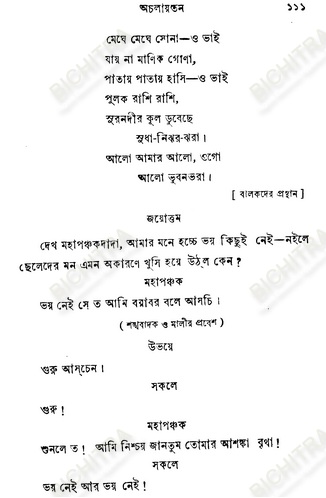 অচলায়তন ১১১
মেঘে মেঘে সোনা—ও ভাই
যায় না মাণিক গোণা,
পাতায় পাতায় হাসি—ও ভাই
পুলক রাশি রাশি,
সুরনদীর কূল ডুবেছে
সুধা-নিঝর-ঝরা।
আলো আমার আলো, ওগো
আলো ভুবনভরা।
[ বালকদের প্রস্থান ]
জয়োত্তম
দেখ মহাপঞ্চকদাদা, আমার মনে হচ্চে ভয় কিছুই নেই—নইলে
ছেলেদের মন এমন অকারণে খুসি হয়ে উঠ্ল কেন ?
মহাপঞ্চক
ভয় নেই সে ত আমি বরাবর বলে আসচি।
( শঙ্খবাদক ও মালীর প্রবেশ )
উভয়ে
গুরু আস্চেন।
সকলে
গুরু !
মহাপঞ্চক
শুনলে ত ! আমি নিশ্চয় জানতুম তোমার আশঙ্কা বৃথা !
সকলে
ভয় নেই আর ভয় নেই !
BICHITRA